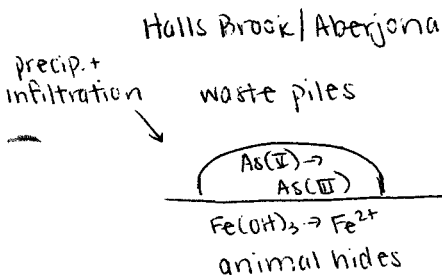 Halls Brook/Aberjona
precip. +
infiltration
waste piles
As(V) →
As(III)
Fe(OH)₃ → Fe²⁺
animal hides